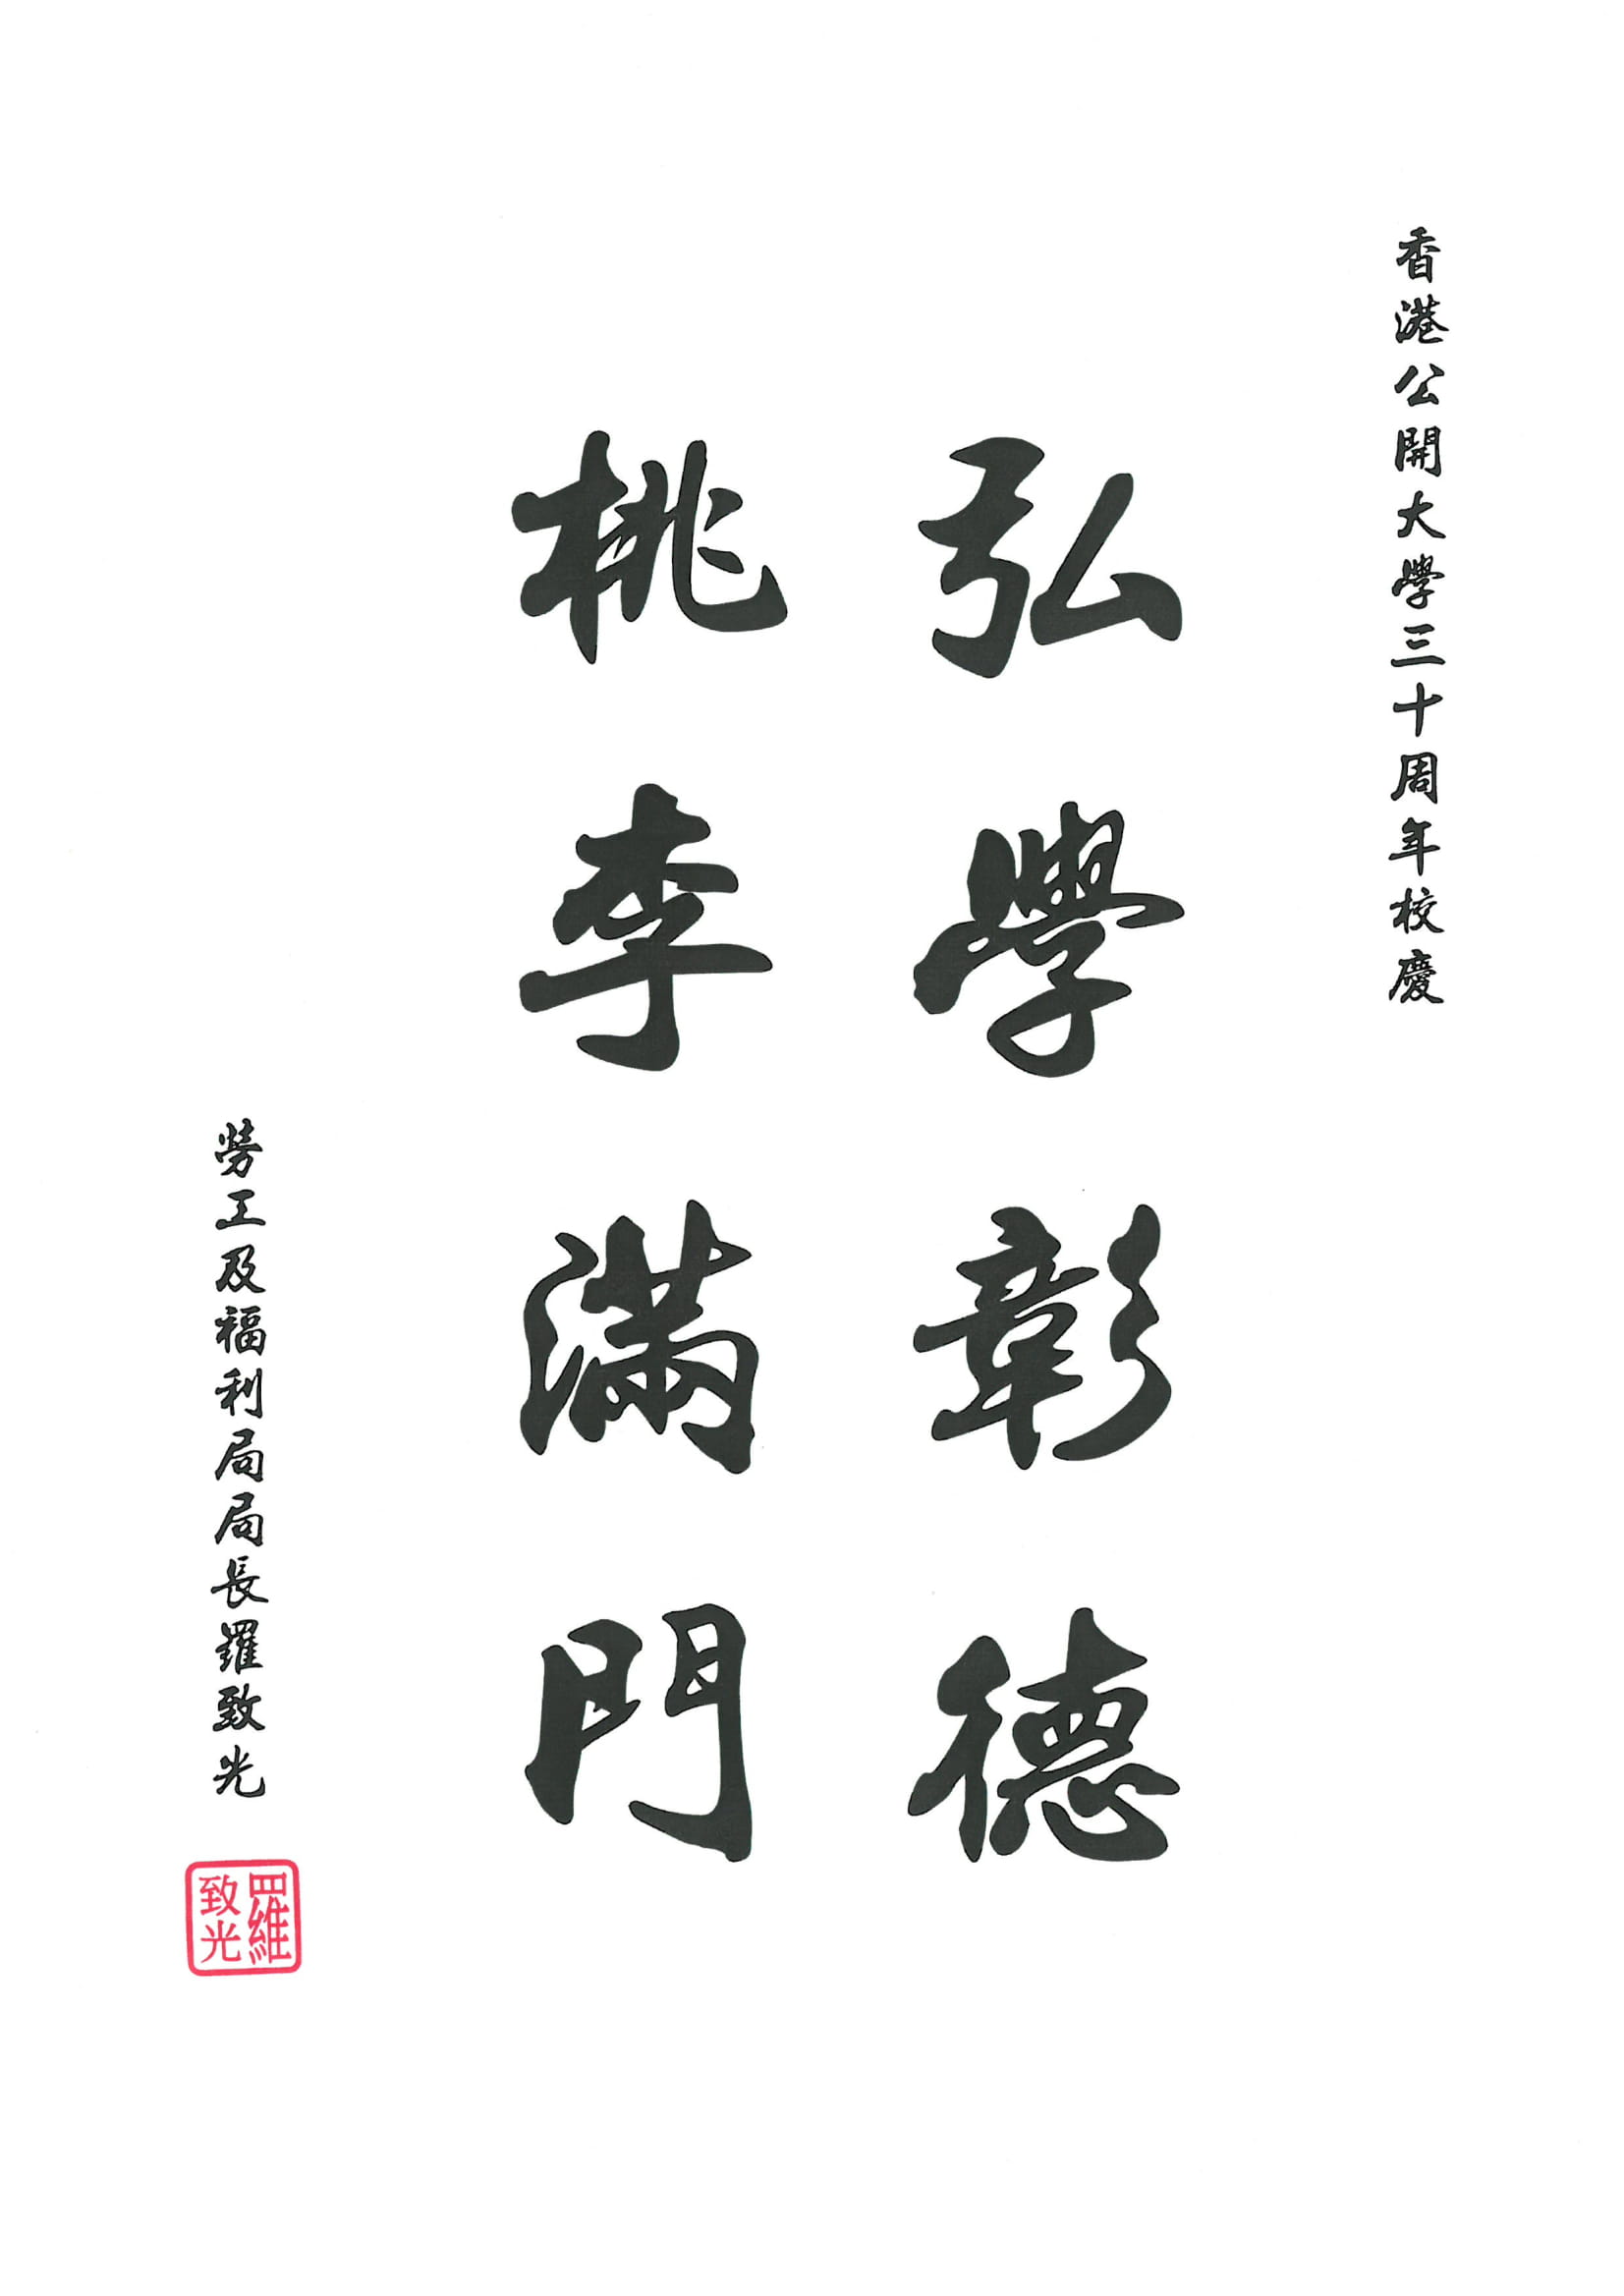 香港公開大學三十周年校慶
弘學彰德
桃李滿門
勞工及福利局局長羅致光
羅致光